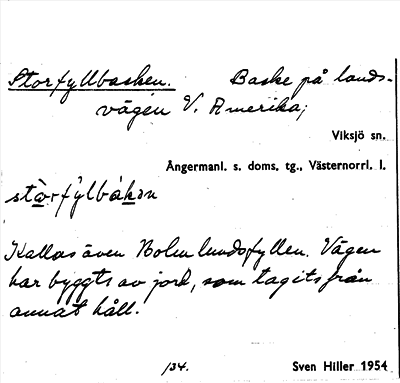 Storfyllbacken. Backe på lands-
vägen V. Amerika;
Viksjö sn.
Ångermanl. s. doms. tg., Västernorrl. l.
Kallas även Bolmlundsfyllen. Vägen
har byggts av jord, som tagits från
annat håll.
134. Sven Hiller 1954